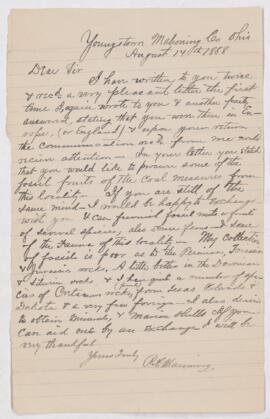 Youngstown Mahoning Co Ohio
August 14th 1868
Dear Sir
I have written to you twice
& recd a very pleasant letter the first
time I again wrote to you & another party
answered, stating that you were then in Eu-
rope, (or England) & upon your return
the communication wd receive
attention — In your letter you stated
that you would like to procure some of the
fossil fruits of the Coal measures from
this locality — If you are still of the
same mind I would be happy to exchange
with you & can furnish fossil nuts or fruit
of several species, also some ferns and some
of the Fauna of this locality — My Collection
of fossils is poor as to the Permian, Triassic
& Jurassic rocks, A little better in the Devonian
& Silurian rocks & I have quite a number of spe-
cies of Cretaceous rocks from Texas
Dakota & a very few foreign — I also desire
to obtain Minerals, & Marine Shells If you
can aid me by an exchange I will be
very thankful
Yours Truly
Manning